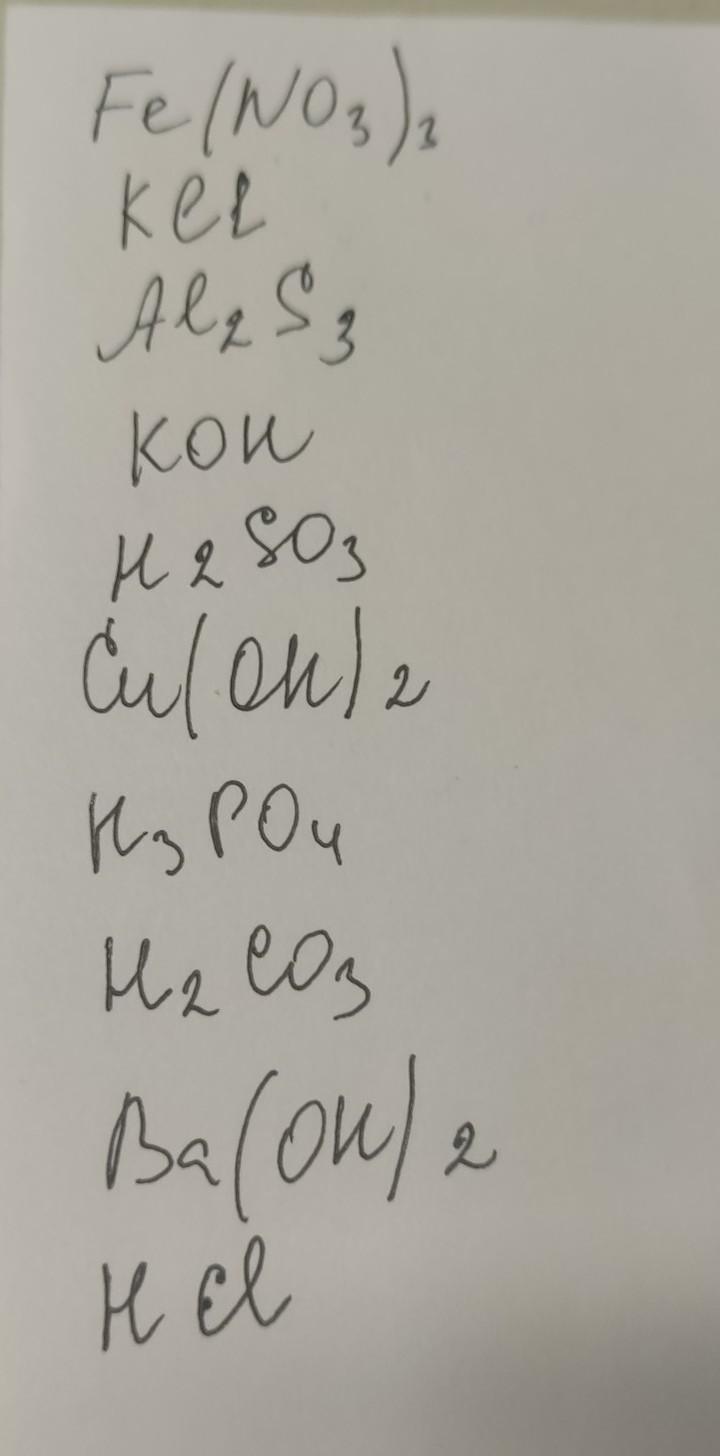 Fe(NO₃)₃
KCl
Al₂S₃
KOH
H₂SO₃
Cu(OH)₂
H₃PO₄
H₂CO₃
Ba(OH)₂
HCl